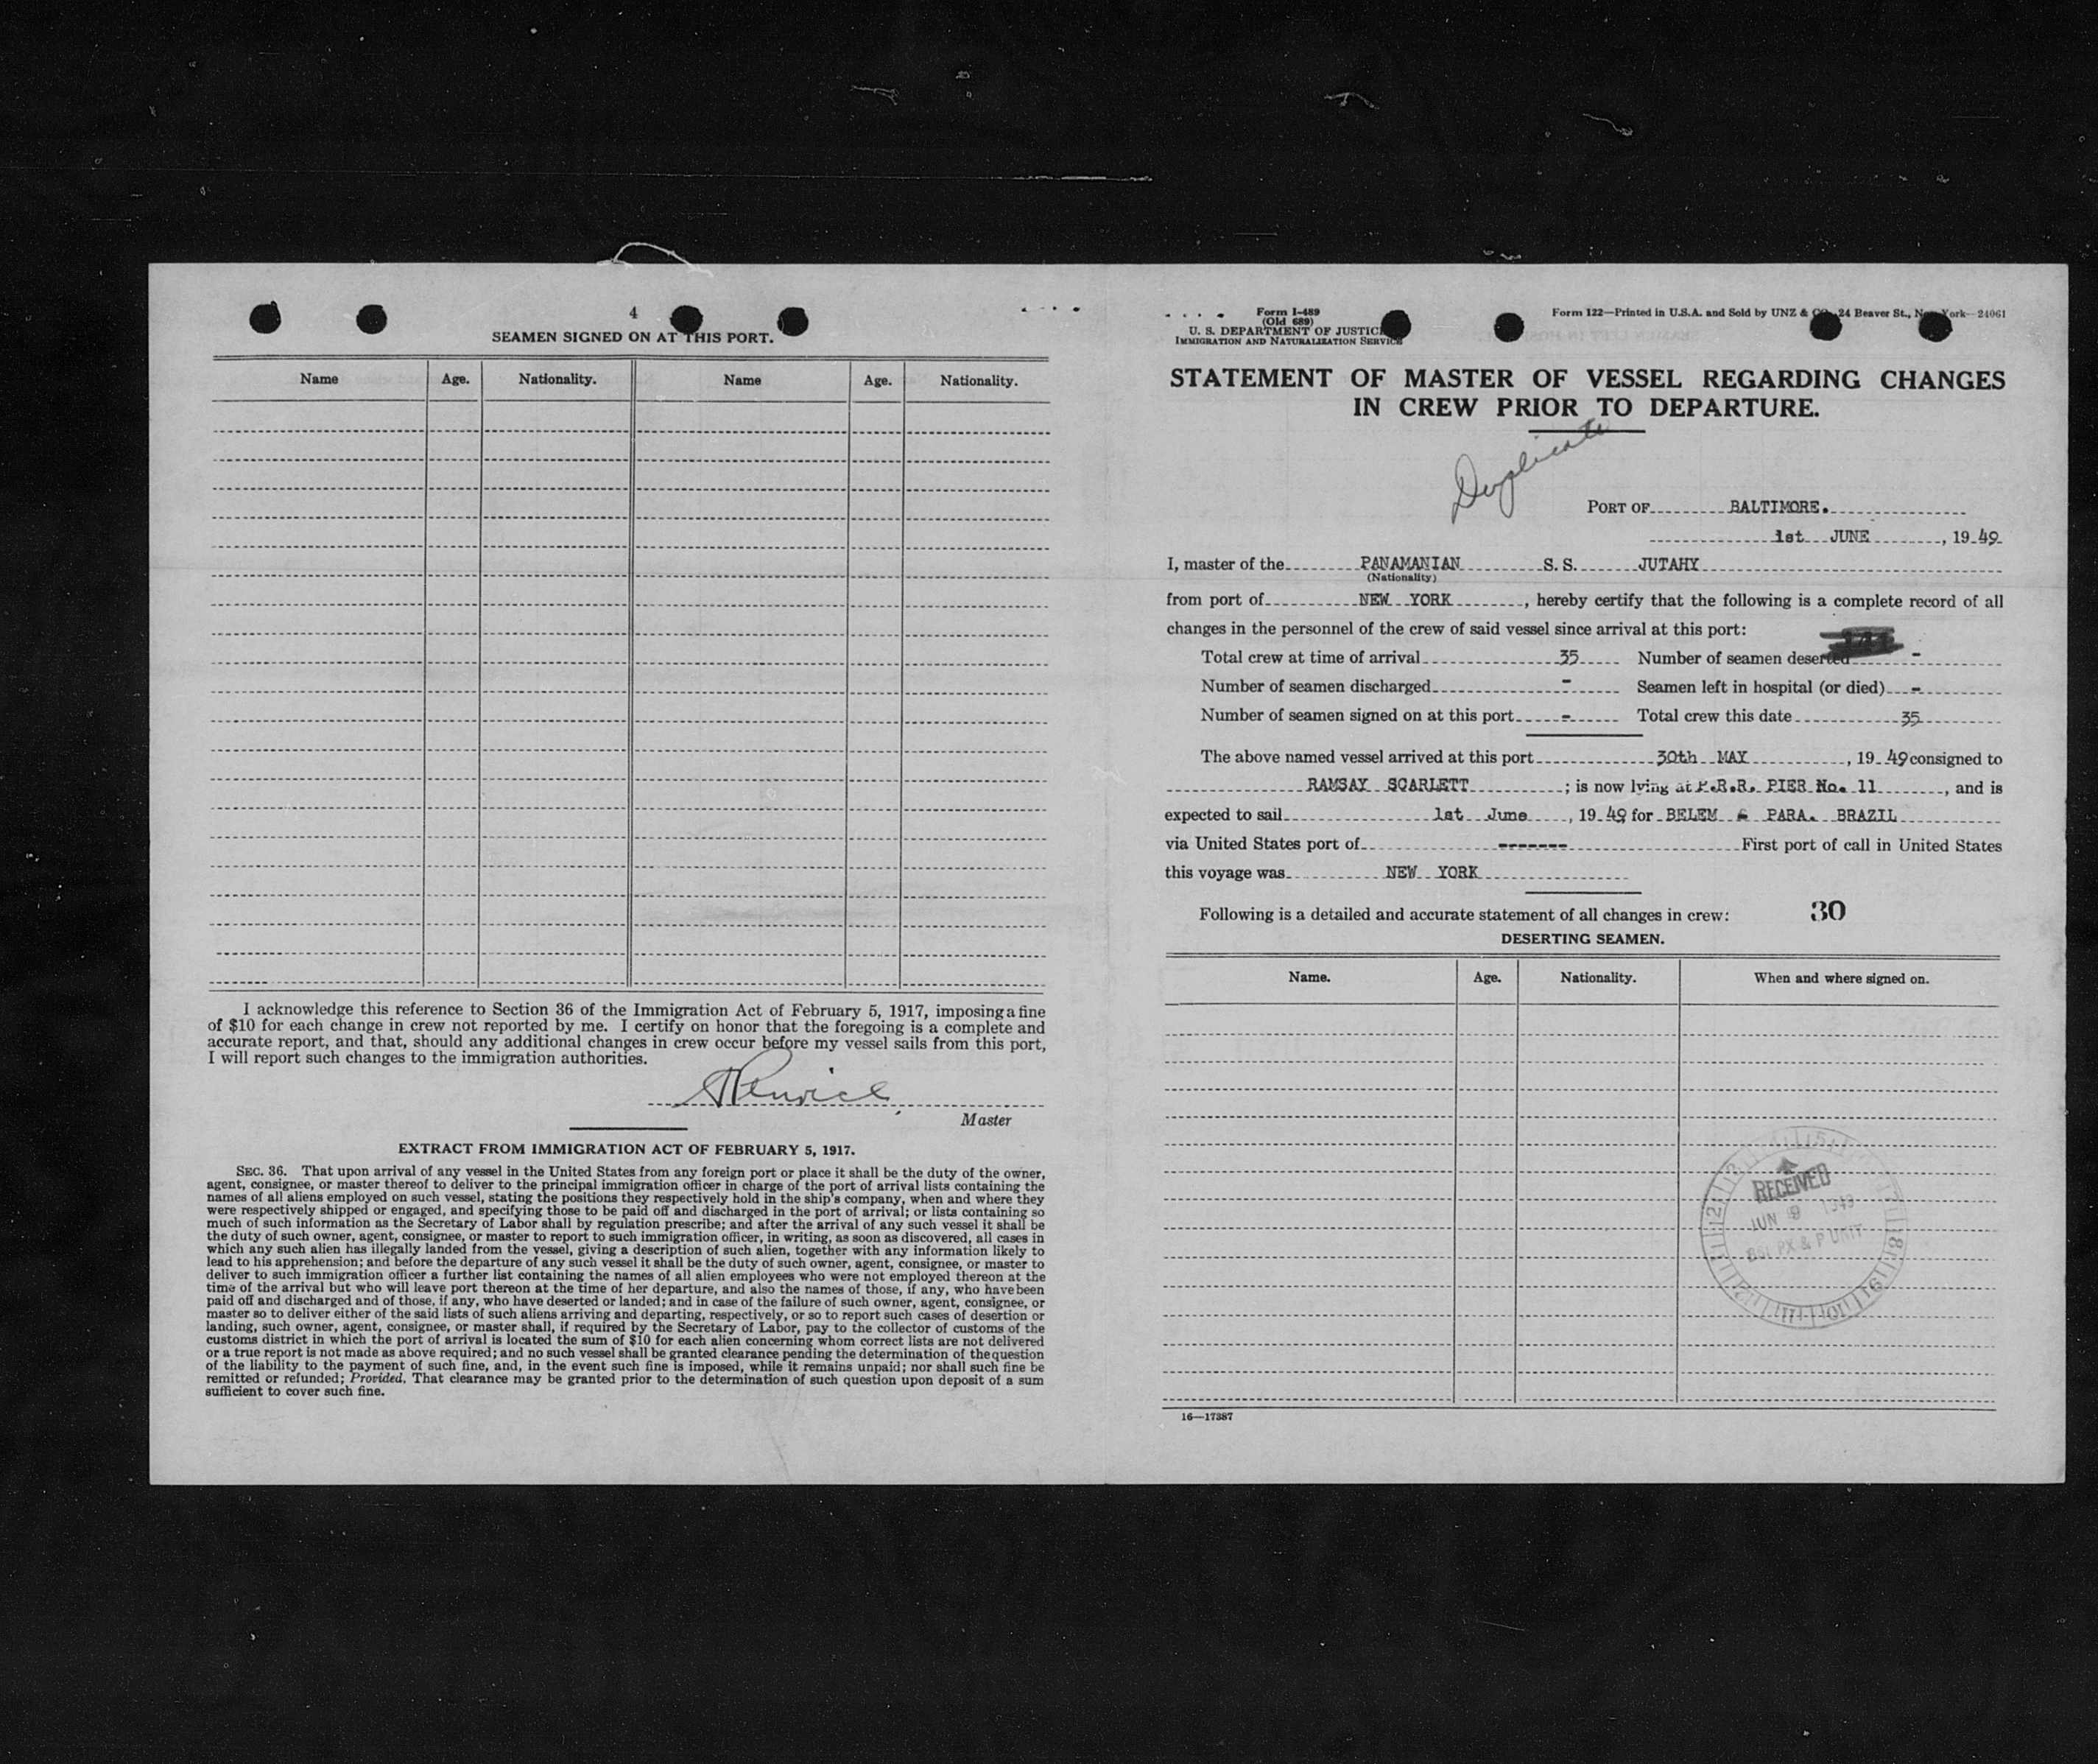 4
SEAMEN SIGNED ON AT THIS PORT.
Name Age. Nationality. Name Age. Nationality.
I acknowledge this reference to Section 36 of the Immigration Act of February 5, 1917, imposing a fine
of $10 for each change in crew not reported by me. I certify on honor that the foregoing is a complete and
accurate report, and that, should any additional changes in crew occur before my vessel sails from this port,
I will report such changes to the immigration authorities.
Master
EXTRACT FROM IMMIGRATION ACT OF FEBRUARY 5, 1917.
SEC. 36. That upon arrival of any vessel in the United States from any foreign port or place it shall be the duty of the owner,
agent, consignee, or master thereof to deliver to the principal immigration officer in charge of the port of arrival lists containing the
names of all aliens employed on such vessel, stating the positions they respectively hold in the ship's company, when and where they
were respectively shipped or engaged, and specifying those to be paid off and discharged in the port of arrival; or lists containing so
much of such information as the Secretary of Labor shall by regulation prescribe; and after the arrival of any such vessel it shall be
the duty of such owner, agent, consignee, or master to report to such immigration officer, in writing, as soon as discovered, all cases in
which any such alien has illegally landed from the vessel, giving a description of such alien, together with any information likely to
lead to his apprehension; and before the departure of any such vessel it shall be the duty of such owner, agent, consignee, or master to
deliver to such immigration officer a further list containing the names of all alien employees who were not employed thereon at the
time of the arrival but who will leave port thereon at the time of her departure, and also the names of those, if any, who have been
paid off and discharged and of those, if any, who have deserted or landed; and in case of the failure of such owner, agent, consignee, or
master so to deliver either of the said lists of such aliens arriving and departing, respectively, or so to report such cases of desertion or
landing, such owner, agent, consignee, or master shall, if required by the Secretary of Labor, pay to the collector of customs of the
customs district in which the port of arrival is located the sum of $10 for each alien concerning whom correct lists are not delivered
or a true report is not made as above required; and no such vessel shall be granted clearance pending the determination of the question
of the liability to the payment of such fine, and, in the event such fine is imposed, while it remains unpaid; nor shall such fine be
remitted or refunded; Provided, That clearance may be granted prior to the determination of such question upon deposit of a sum
sufficient to cover such fine.
Form I-489
(Old 689)
U. S. DEPARTMENT OF JUSTICE
IMMIGRATION AND NATURALIZATION SERVICE
Form 122—Printed in U.S.A. and Sold by UNZ & CO., 24 Beaver St., New York—24061
STATEMENT OF MASTER OF VESSEL REGARDING CHANGES
IN CREW PRIOR TO DEPARTURE.
Duplicate
PORT OF BALTIMORE.
1st JUNE, 1949
I, master of the PANAMANIAN S. S. JUTAHY
(Nationality)
from port of NEW YORK, hereby certify that the following is a complete record of all
changes in the personnel of the crew of said vessel since arrival at this port:
Total crew at time of arrival 35 Number of seamen deserted -
Number of seamen discharged - Seamen left in hospital (or died) -
Number of seamen signed on at this port - Total crew this date 35
The above named vessel arrived at this port 30th MAY, 1949 consigned to
RAMSAY SCARLETT; is now lying at P.R.R. PIER No. 11, and is
expected to sail 1st June, 1949 for BELEM & PARA. BRAZIL
via United States port of ------- First port of call in United States
this voyage was NEW YORK
Following is a detailed and accurate statement of all changes in crew: 30
DESERTING SEAMEN.
Name. Age. Nationality. When and where signed on.
RECEIVED
JUN 9 1949
PX & P UNIT
16—17387